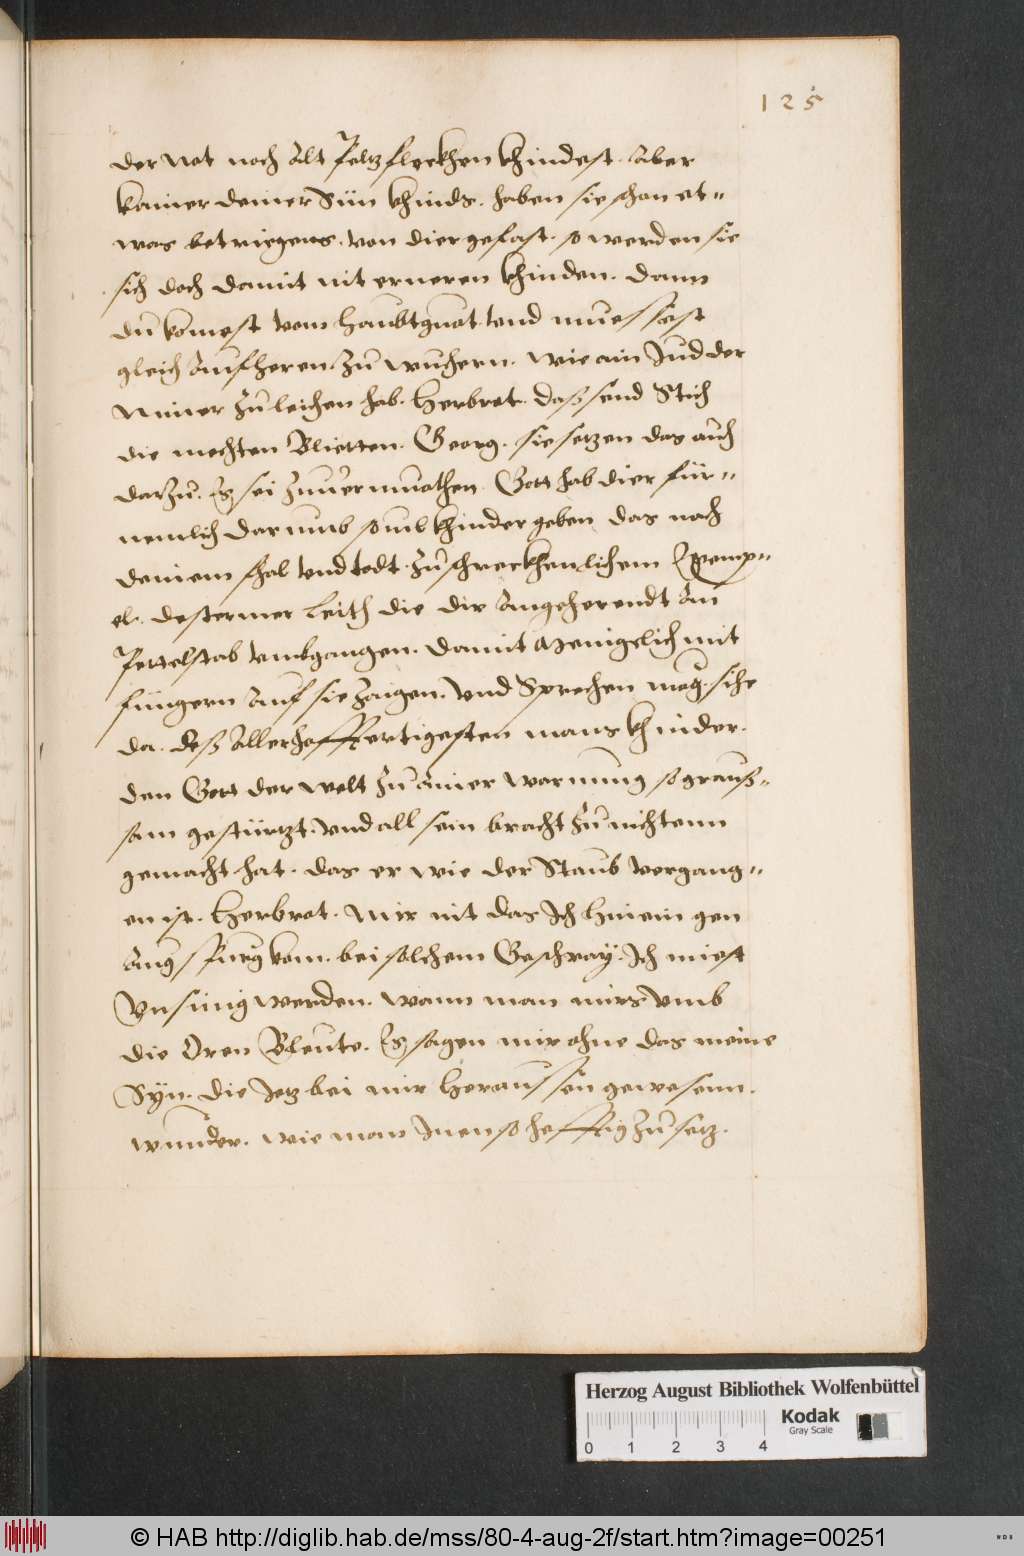 125
der Not noch Alt Peltzfleckhen khindest. Aber
kainer deiner Sün khinds. haben sie schon et=
was betriegens. von dier gefast. so werden sie
sich doch damit nit erneren khinden. dann
du komest vom Haubtguot. vnd muessest
gleich Aufheren. zu wuchern. wie ain Jud der
Nimer zu leichen hab. Herbrot. daß send Stich
die mechten Blietten. Georg. sie setzen das auch
darzu. Es sei zuuermuothen. Gott hab dier für=
nemlich darumb souil khinder geben das nach
deinem fhal vnd todt. zu schreckhenlichem Exemp=
el. destermer Leith die dir Angeherendt Am
Pettelstab vmbgangen. damit Menigelich mit
füngern Auf sie zaigen. Vnd Sprechen meg. sihe
da. deß Allerhoffertigesten mans khinder.
den Gott der welt zu Ainer warnung so grauß=
sam gestürtzt. Vnd all sein bracht zu nichtenn
gemacht hat. das er wie der Staub vergang=
en ist. Herbrot. Mir nit das Ich hinein gen
Augspurg kom. bei solchem Geschray. Ich miest
Vnsinig werden. wann man mirs vmb
die Oren Bleute. Es sagen mir ohne das meine
Syn. die Jetz bei mir heraussen gewesenn.
wunder. wie man Inen so hefftig zu setz.
Herzog August Bibliothek Wolfenbüttel
Kodak
Gray Scale
0 1 2 3 4
© HAB http://diglib.hab.de/mss/80-4-aug-2f/start.htm?image=00251